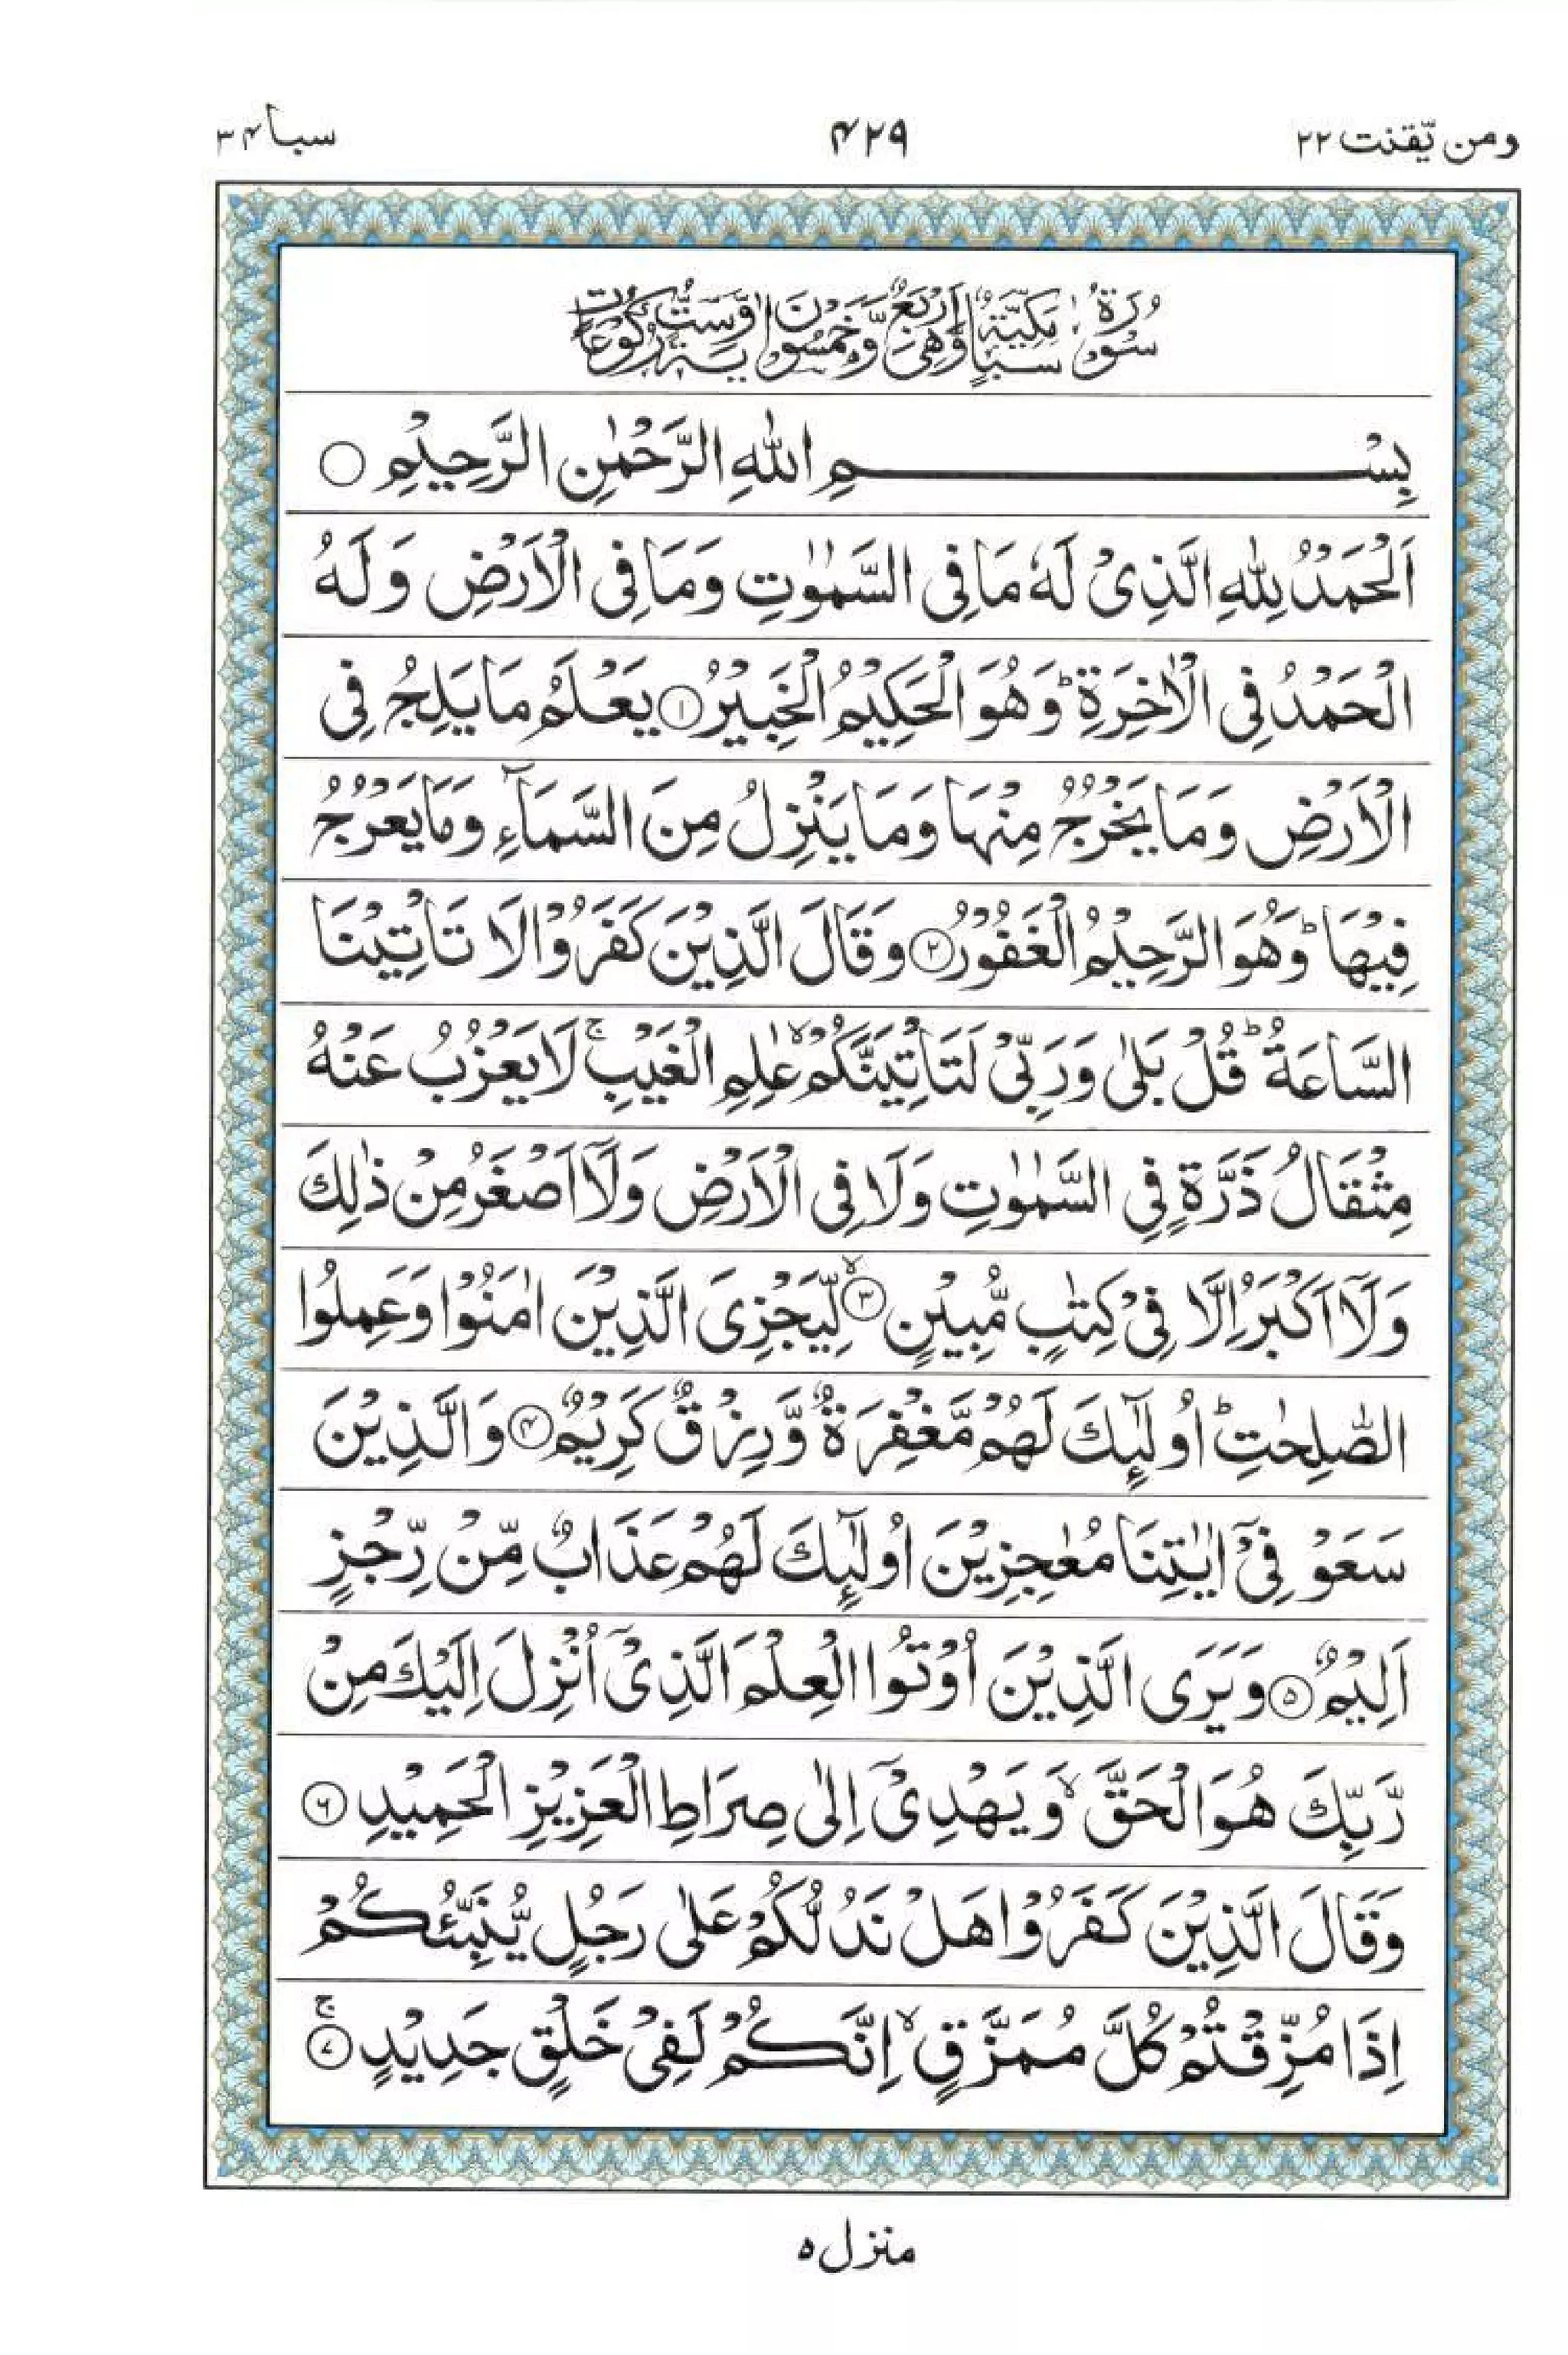 ومن یّقنت ۲۲
۴۲۹
سبا ۳۴
سُوْرَةُ سَبَاٍ مَكِّيَّةٌ وَّهِيَ اَرْبَعٌ وَّخَمْسُوْنَ اٰيَةً وَّسِتُّ رُكُوْعَاتٍ
بِسْمِ اللّٰهِ الرَّحْمٰنِ الرَّحِيْمِ ۝
اَلْحَمْدُ لِلّٰهِ الَّذِىْ لَهٗ مَا فِى السَّمٰوٰتِ وَمَا فِى الْاَرْضِ وَلَهُ
الْحَمْدُ فِى الْاٰخِرَةِ ؕ وَهُوَ الْحَكِيْمُ الْخَبِيْرُ ۝۱ يَعْلَمُ مَا يَلِجُ فِى
الْاَرْضِ وَمَا يَخْرُجُ مِنْهَا وَمَا يَنْزِلُ مِنَ السَّمَآءِ وَمَا يَعْرُجُ
فِيْهَا ؕ وَهُوَ الرَّحِيْمُ الْغَفُوْرُ ۝۲ وَقَالَ الَّذِيْنَ كَفَرُوْا لَا تَاْتِيْنَا
السَّاعَةُ ؕ قُلْ بَلٰى وَرَبِّىْ لَتَاْتِيَنَّكُمْ ۙ عٰلِمِ الْغَيْبِ ۚ لَا يَعْزُبُ عَنْهُ
مِثْقَالُ ذَرَّةٍ فِى السَّمٰوٰتِ وَلَا فِى الْاَرْضِ وَلَاۤ اَصْغَرُ مِنْ ذٰلِكَ
وَلَاۤ اَكْبَرُ اِلَّا فِىْ كِتٰبٍ مُّبِيْنٍ ۙ۝۳ لِّيَجْزِىَ الَّذِيْنَ اٰمَنُوْا وَعَمِلُوا
الصّٰلِحٰتِ ؕ اُولٰٓئِكَ لَهُمْ مَّغْفِرَةٌ وَّرِزْقٌ كَرِيْمٌ ۝۴ وَالَّذِيْنَ
سَعَوْ فِىْۤ اٰيٰتِنَا مُعٰجِزِيْنَ اُولٰٓئِكَ لَهُمْ عَذَابٌ مِّنْ رِّجْزٍ
اَلِيْمٌ ۝۵ وَيَرَى الَّذِيْنَ اُوْتُوا الْعِلْمَ الَّذِىْۤ اُنْزِلَ اِلَيْكَ مِنْ
رَّبِّكَ هُوَ الْحَقَّ ۙ وَيَهْدِىْۤ اِلٰى صِرَاطِ الْعَزِيْزِ الْحَمِيْدِ ۝۶
وَقَالَ الَّذِيْنَ كَفَرُوْا هَلْ نَدُلُّكُمْ عَلٰى رَجُلٍ يُّنَبِّئُكُمْ
اِذَا مُزِّقْتُمْ كُلَّ مُمَزَّقٍ ۙ اِنَّكُمْ لَفِىْ خَلْقٍ جَدِيْدٍ ۚ۝۷
منزل ۵